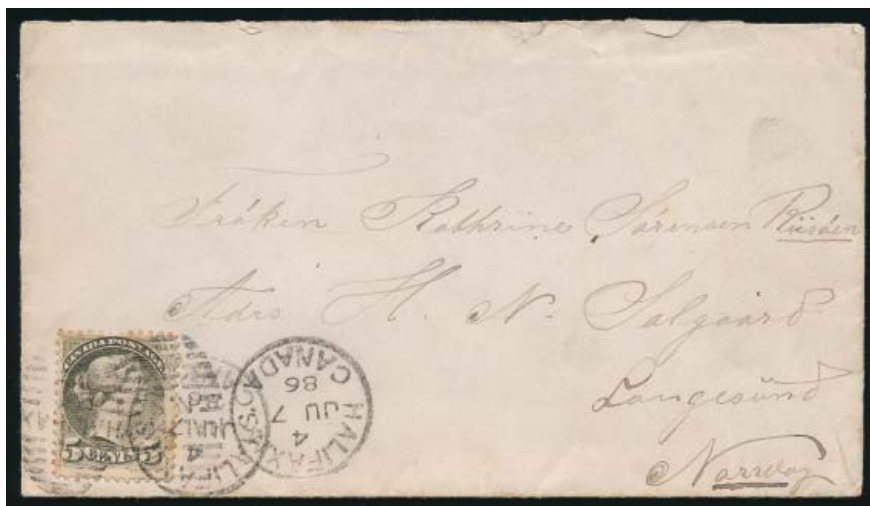 Fröken Kathrine Sörensen Riisöen
Adrs H. N. Salgaard
Langesünd
Norrway
CANADA POSTAGE
5 CENTS 5
HALIFAX
4
JU 7
86
CANADA